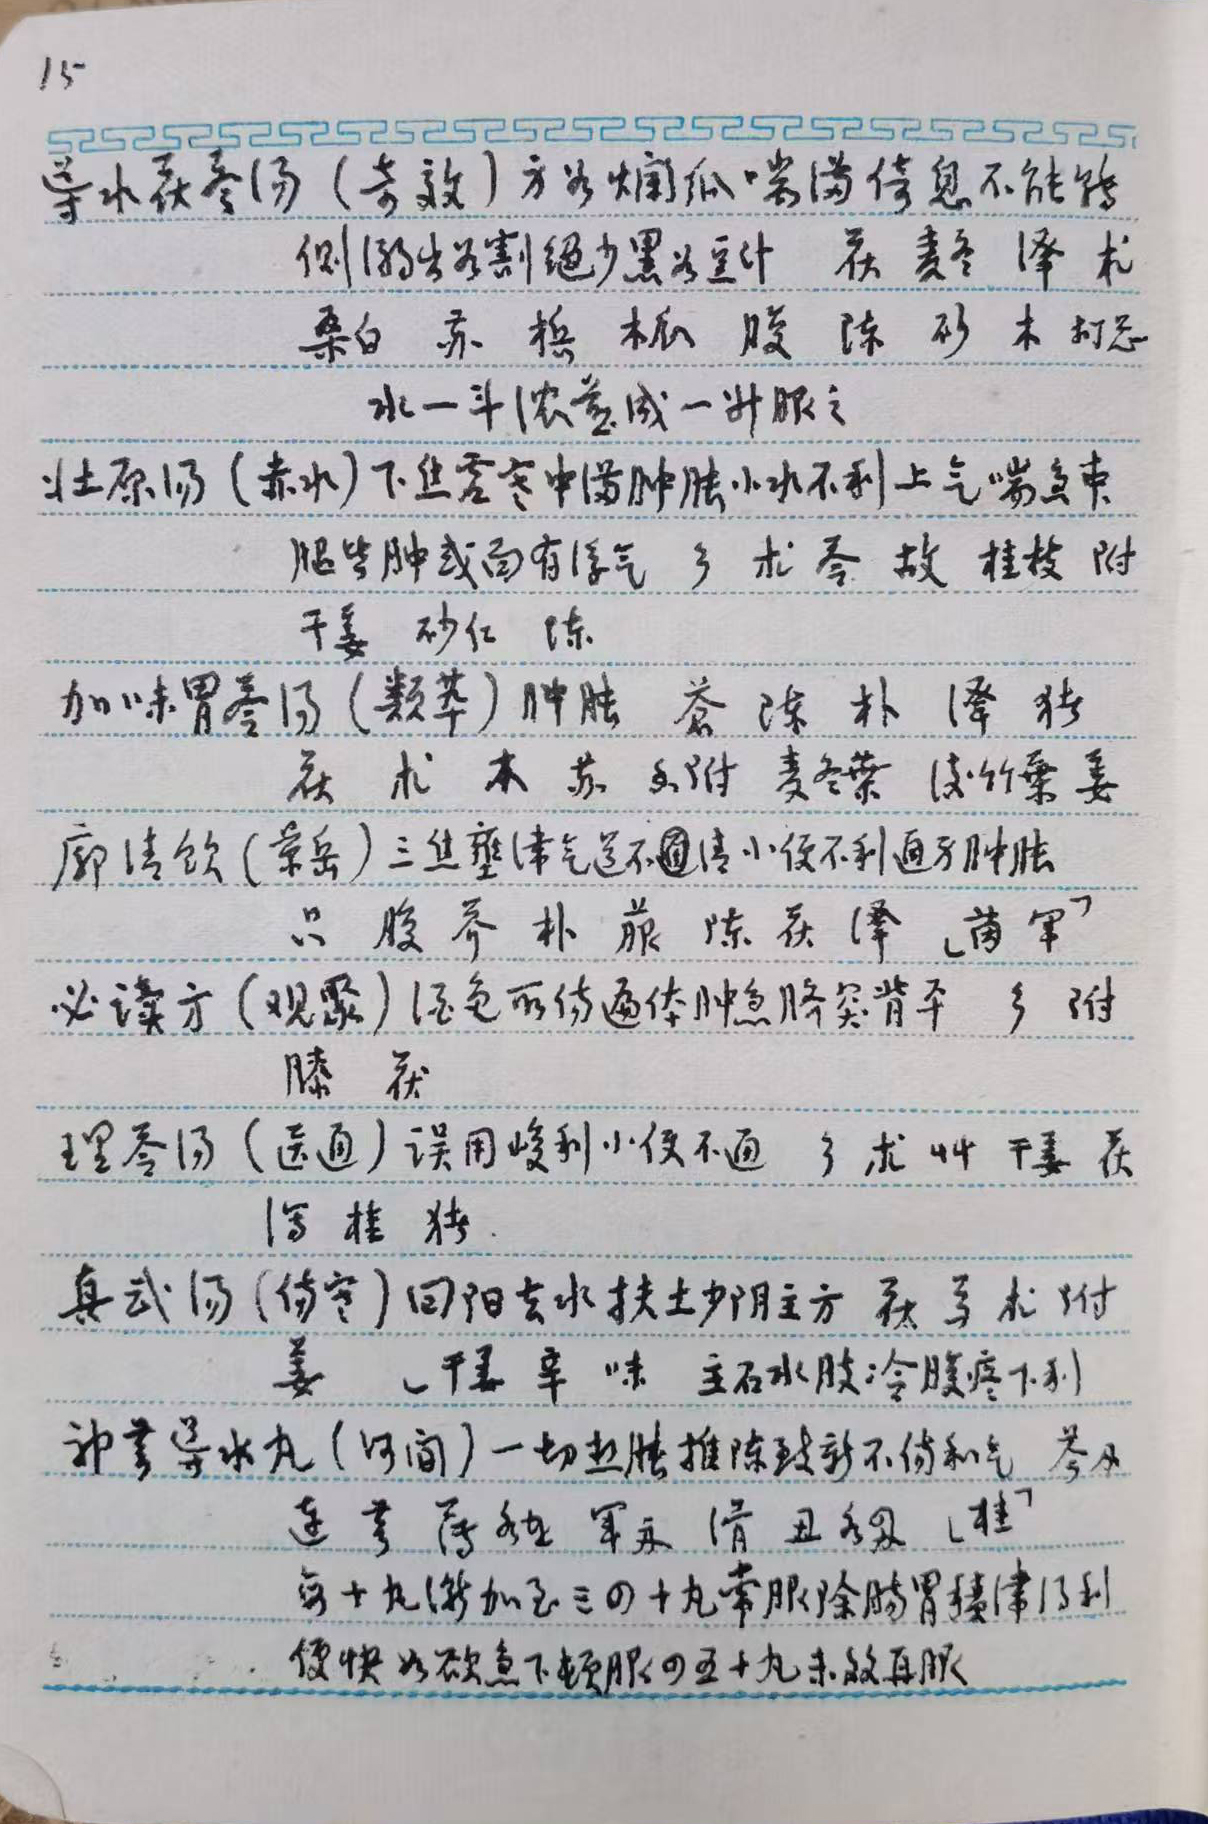 15
导水茯苓汤（奇效）方如烂瓜喘满倚息不能转
侧溺出如割绝少黑如豆汁 茯 麦冬 泽 术
桑白 苏 槟 木瓜 腹 陈 砂 木 灯芯
水一斗浓煎成一升服之
壮原汤（赤水）下焦虚寒中满肿胀小水不利上气喘急
腿皆肿或面有浮气 术 苓 故 桂枝 附
干姜 砂仁 陈
加味胃苓汤（类萃）肿胀 苍 陈 朴 泽 猪
茯 术 木 苏 香附 麦冬 姜
廓清饮（景岳）三焦壅滞气道不通清小便不利通身肿胀
只 腹 芥 朴 菔 陈 茯 泽 茵 军
必读方（观聚）酒色所伤遍体肿急脐突背平 附
膝 茯
理苓汤（医通）误用峻利小便不通 术 艹 干姜 茯
泻 桂 猪
真武汤（伤寒）回阳去水扶土少阴主方 茯 芍 术 附
姜 干姜 辛 味 主石水肢冷腹疼下利
神芎导水丸（河间）一切热胀推陈致新不伤和气 芩
连 芎 薄 军 滑 丑 桂
每十丸渐加至三四十丸常服除肠胃积滞得利
便快如欲急下顿服四五十丸未效再服